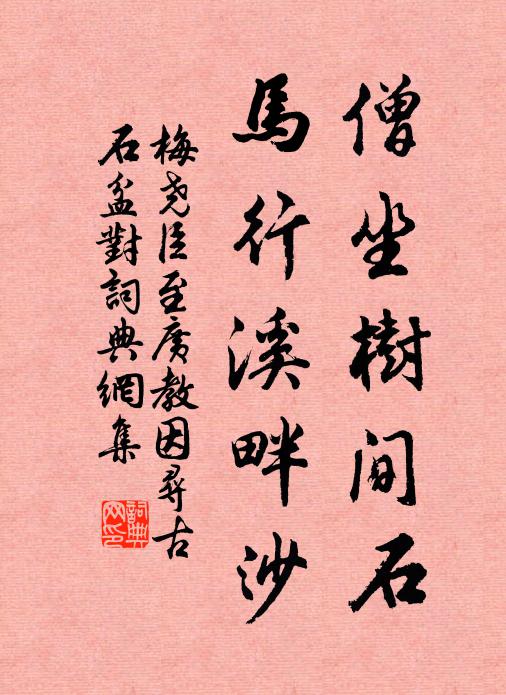 僧坐樹間石
馬行溪畔沙
梅尧臣至廣教因尋古
石盆對詞典網集
詞典網印